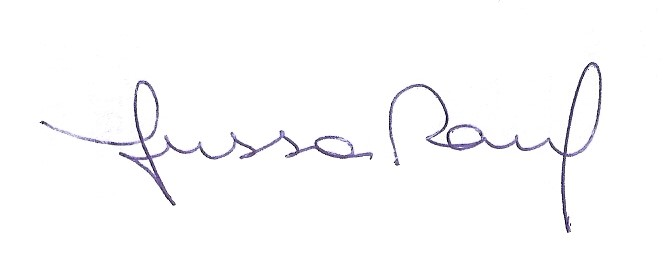 Jussa Raul